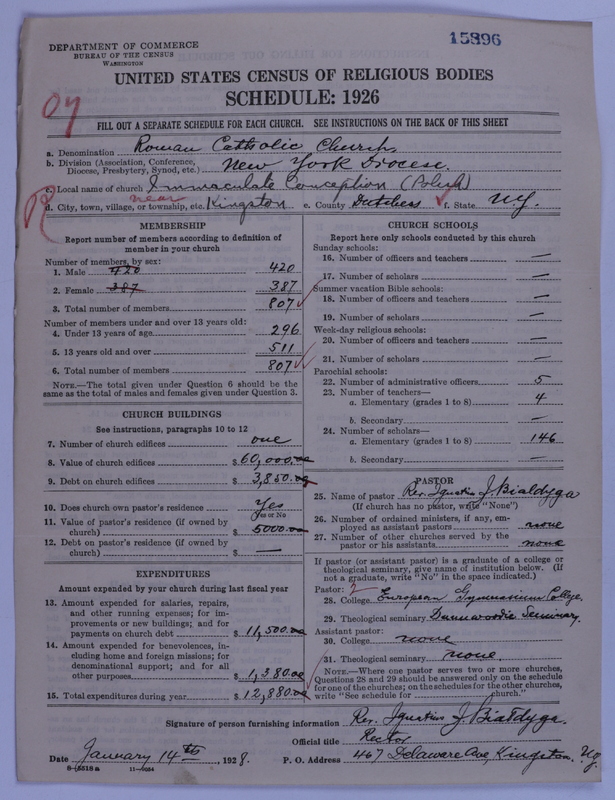 15396
DEPARTMENT OF COMMERCE
BUREAU OF THE CENSUS
WASHINGTON
UNITED STATES CENSUS OF RELIGIOUS BODIES
SCHEDULE: 1926
FILL OUT A SEPARATE SCHEDULE FOR EACH CHURCH. SEE INSTRUCTIONS ON THE BACK OF THIS SHEET
a. Denomination Roman Catholic Church
b. Division (Association, Conference, Diocese, Presbytery, Synod, etc.) New York Diocese
c. Local name of church Immaculate Conception (Polish)
near
d. City, town, village, or township, etc. Kingston e. County Dutchess f. State N.Y.
MEMBERSHIP
Report number of members according to definition of
member in your church
Number of members, by sex:
1. Male 420 420
2. Female 387 387
3. Total number of members 807
Number of members under and over 13 years old:
4. Under 13 years of age 296
5. 13 years old and over 511
6. Total number of members 807
NOTE.—The total given under Question 6 should be the
same as the total of males and females given under Question 3.
CHURCH BUILDINGS
See instructions, paragraphs 10 to 12
7. Number of church edifices one
8. Value of church edifices $60,000.00
9. Debt on church edifices $ 3,850.00
10. Does church own pastor's residence Yes
Yes or No
11. Value of pastor's residence (if owned by
church) $ 5000.00
12. Debt on pastor's residence (if owned by
church) $ —
EXPENDITURES
Amount expended by church during last fiscal year
13. Amount expended for salaries, repairs,
and other running expenses; for im-
provements or new buildings; and for
payments on church debt $ 11,500.00
14. Amount expended for benevolences, in-
cluding home and foreign missions; for
denominational support; and for all
other purposes $ 1,380.00
15. Total expenditures during year $ 12,880.00
CHURCH SCHOOLS
Report here only schools conducted by this church
Sunday schools:
16. Number of officers and teachers —
17. Number of scholars —
Summer vacation Bible schools:
18. Number of officers and teachers —
19. Number of scholars —
Week-day religious schools:
20. Number of officers and teachers —
21. Number of scholars —
Parochial schools:
22. Number of administrative officers 5
23. Number of teachers—
a. Elementary (grades 1 to 8) 4
b. Secondary —
24. Number of scholars—
a. Elementary (grades 1 to 8) 146
b. Secondary —
PASTOR
25. Name of pastor Rev. Ignatius J. Bialdyga
(If church has no pastor, write "None")
26. Number of ordained ministers, if any, em-
ployed as assistant pastors none
27. Number of other churches served by the
pastor or his assistants none
If pastor (or assistant pastor) is a graduate of a college or
theological seminary, give name of institution below. (If
not a graduate, write "No" in the space indicated.)
Pastor:
28. College European Gymnasium College
29. Theological seminary Dunwoodie Seminary
Assistant pastor:
30. College none
31. Theological seminary none
NOTE.—Where one pastor serves two or more churches,
Questions 28 and 29 should be answered only on the schedule
for one of the churches; on the schedules for the other churches,
write "See schedule for church."
Signature of person furnishing information Rev. Ignatius J. Bialdyga.
Official title Rector
Date January 14th, 1928. P. O. Address 467 Delaware Ave, Kingston, N.Y.